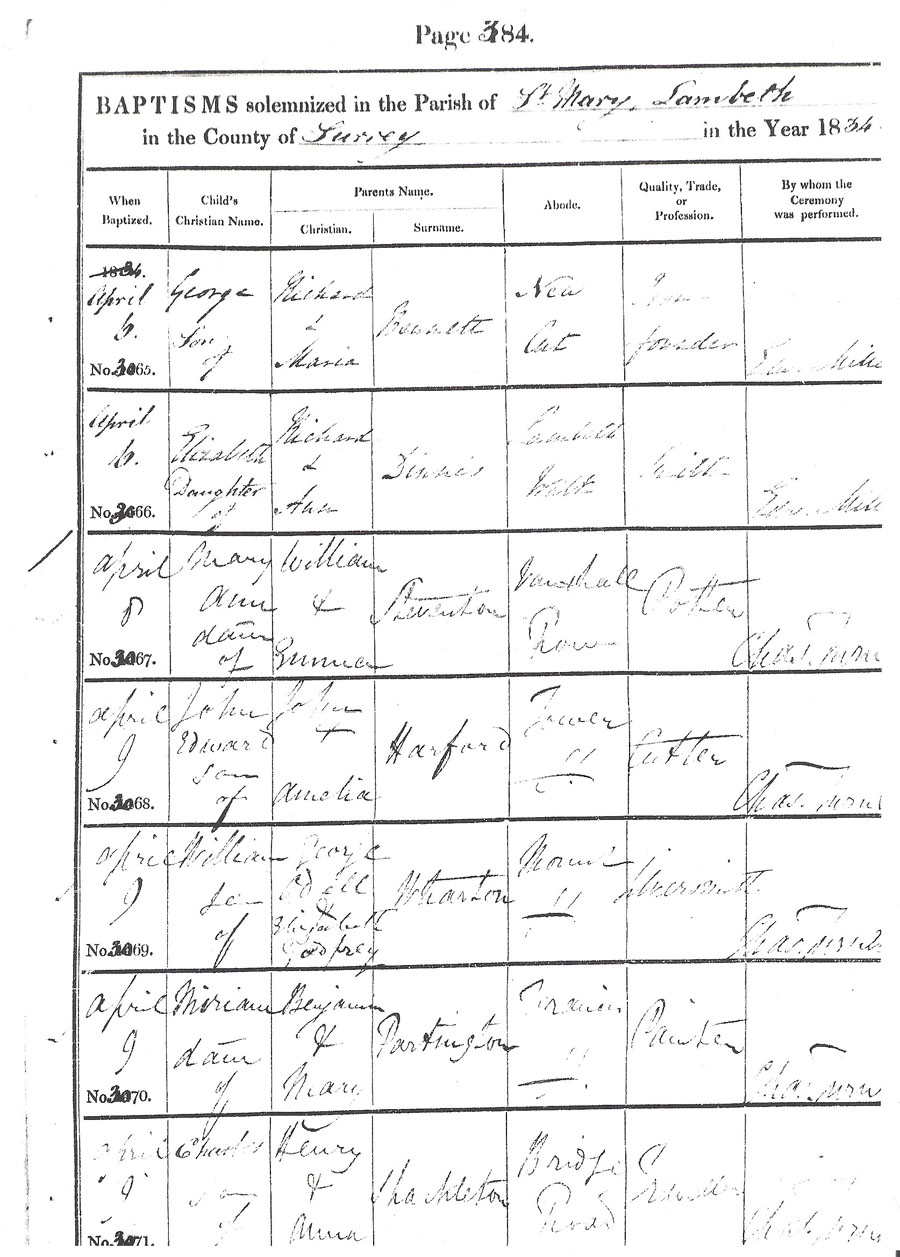 Page 384.
BAPTISMS solemnized in the Parish of St Mary, Lambeth
in the County of Surrey in the Year 1834
When Baptized. Child's Christian Name. Parents Name. Christian. Surname. Abode. Quality, Trade, or Profession. By whom the Ceremony was performed.
1834.
April George Richard New
6. Son & Bennett Cut founder
No. 3065. of Maria
April Elizabeth Richard Lambeth
6. Daughter & Dinnis Walk
No. 3066. of Ann
April Mary William Vauxhall Potter
8 Ann & Steventon Row
daur
No. 3067. of Emma Chas.
April John John Tower
9 Edward & Harford Cutler
son
No. 3068. of Amelia Chas.
April William George
9 Son Odell Wharton
& Elizabeth
No. 3069. of Godfrey Chas.
April Miriam Benjamin Francis
9 daur & Partington Painter
No. 3070. of Mary Chas.
April Charles Henry Bridge
9 son & Shackleton Road
No. 3071. of Anna Chas.